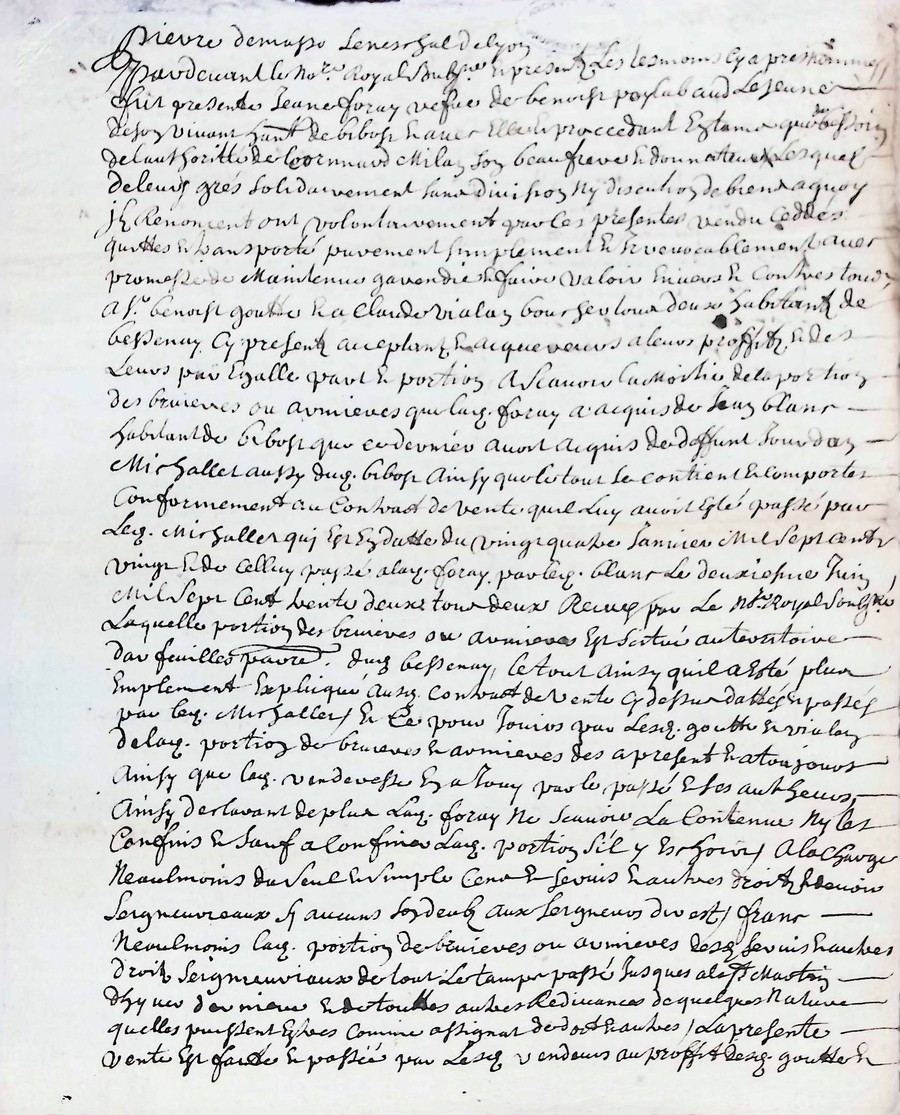 Pierre demasso Seneschal de lyon
Pardevant le No.re Royal Soubz.né En presentz Les tesmoins Cy apres Nommes
fust presente Jeane foray vefue de benoist poylabaud Le Jeune
de son vivant hant de bibost Et avec Elle Et proccedant Estante que besoin
de lauthoritté de Milan Son beaufrere Et donnateur Lesquels
de leurs grés Solidairement Sans division Ny discution de biens a quoy
jlz Renoncent ont volontairement par les presentes vendu Ceddés
quittés Et transporté purement Simplement Et Irrevocablement avec
promesse de Maintenir garendir Et faire valoir Envers Et Contres tous,
A Sr. benoist goutte Et a Claude vialan boucher tous deux habitantz de
bessenay Cy presentz acceptantz Et acquereurs a leurs proffitz Et des
Leurs par Egalle part Et portion A Scavoir la Moitié de la portion
des bruieres ou armieres que lad. foray a acquis de Jean blanc
habitant de bibost que ce dernier avoit acquis de deffunt Jourdan
Michallet aussy dud. bibost Ainsy que le tout Se contient Et comporte
Conformement au Contract de vente quil Luy avoit Esté passé par
Led. Michallet qui Est En datte du vingt quatre Janvier Mil Sept Cent
vingt Et de Celluy passé a lad. foray par led. blanc Le deuxiesme Juin
Mil Sept Cent trente deux tous deux Receus par Le No.re Royal Soubz.né
Laquelle portion des bruieres ou armieres Est Scitué au territoire
dar feuilles dud. bessenay, le tout Ainsy quil a Esté plus
Emplement Expliqué Aud. Contract de vente Cy dessus dattés Et passés
par led. Michallet / Et Ce pour Jouir par Lesd. goutte Et vialan
de lad. portion de bruieres Et armieres des a present Et a toujours
Ainsy que lad. venderesse En a Jouy par le passé Et Ses autheurs,
Ainsy declarant de plus Lad. foray Ne Scavoir La Contenue Ny les
Confins Et Sauf a Confiner Lad. portion Sil y Eschoit / A la Charge
Neaulmoins du Seul Et Simple Cens Et Servis Et autres droitz Et devoirs
Seigneureaux Sy aucuns Son deubz aux Seigneurs direst / franc
Neaulmoins lad. portion de bruieres ou armieres desd. Servis Et autres
droitz Seigneuriaux de tout Le tamps passé Jusques a la St Martin
dhyver dernier Et de touttes autres Redevances de quelques Nature
quelles puissent Estres Comme assignat de dot Et autres / La presente
vente Est faitte Et passée par Lesd. vendeurs au proffit desd. goutte Et